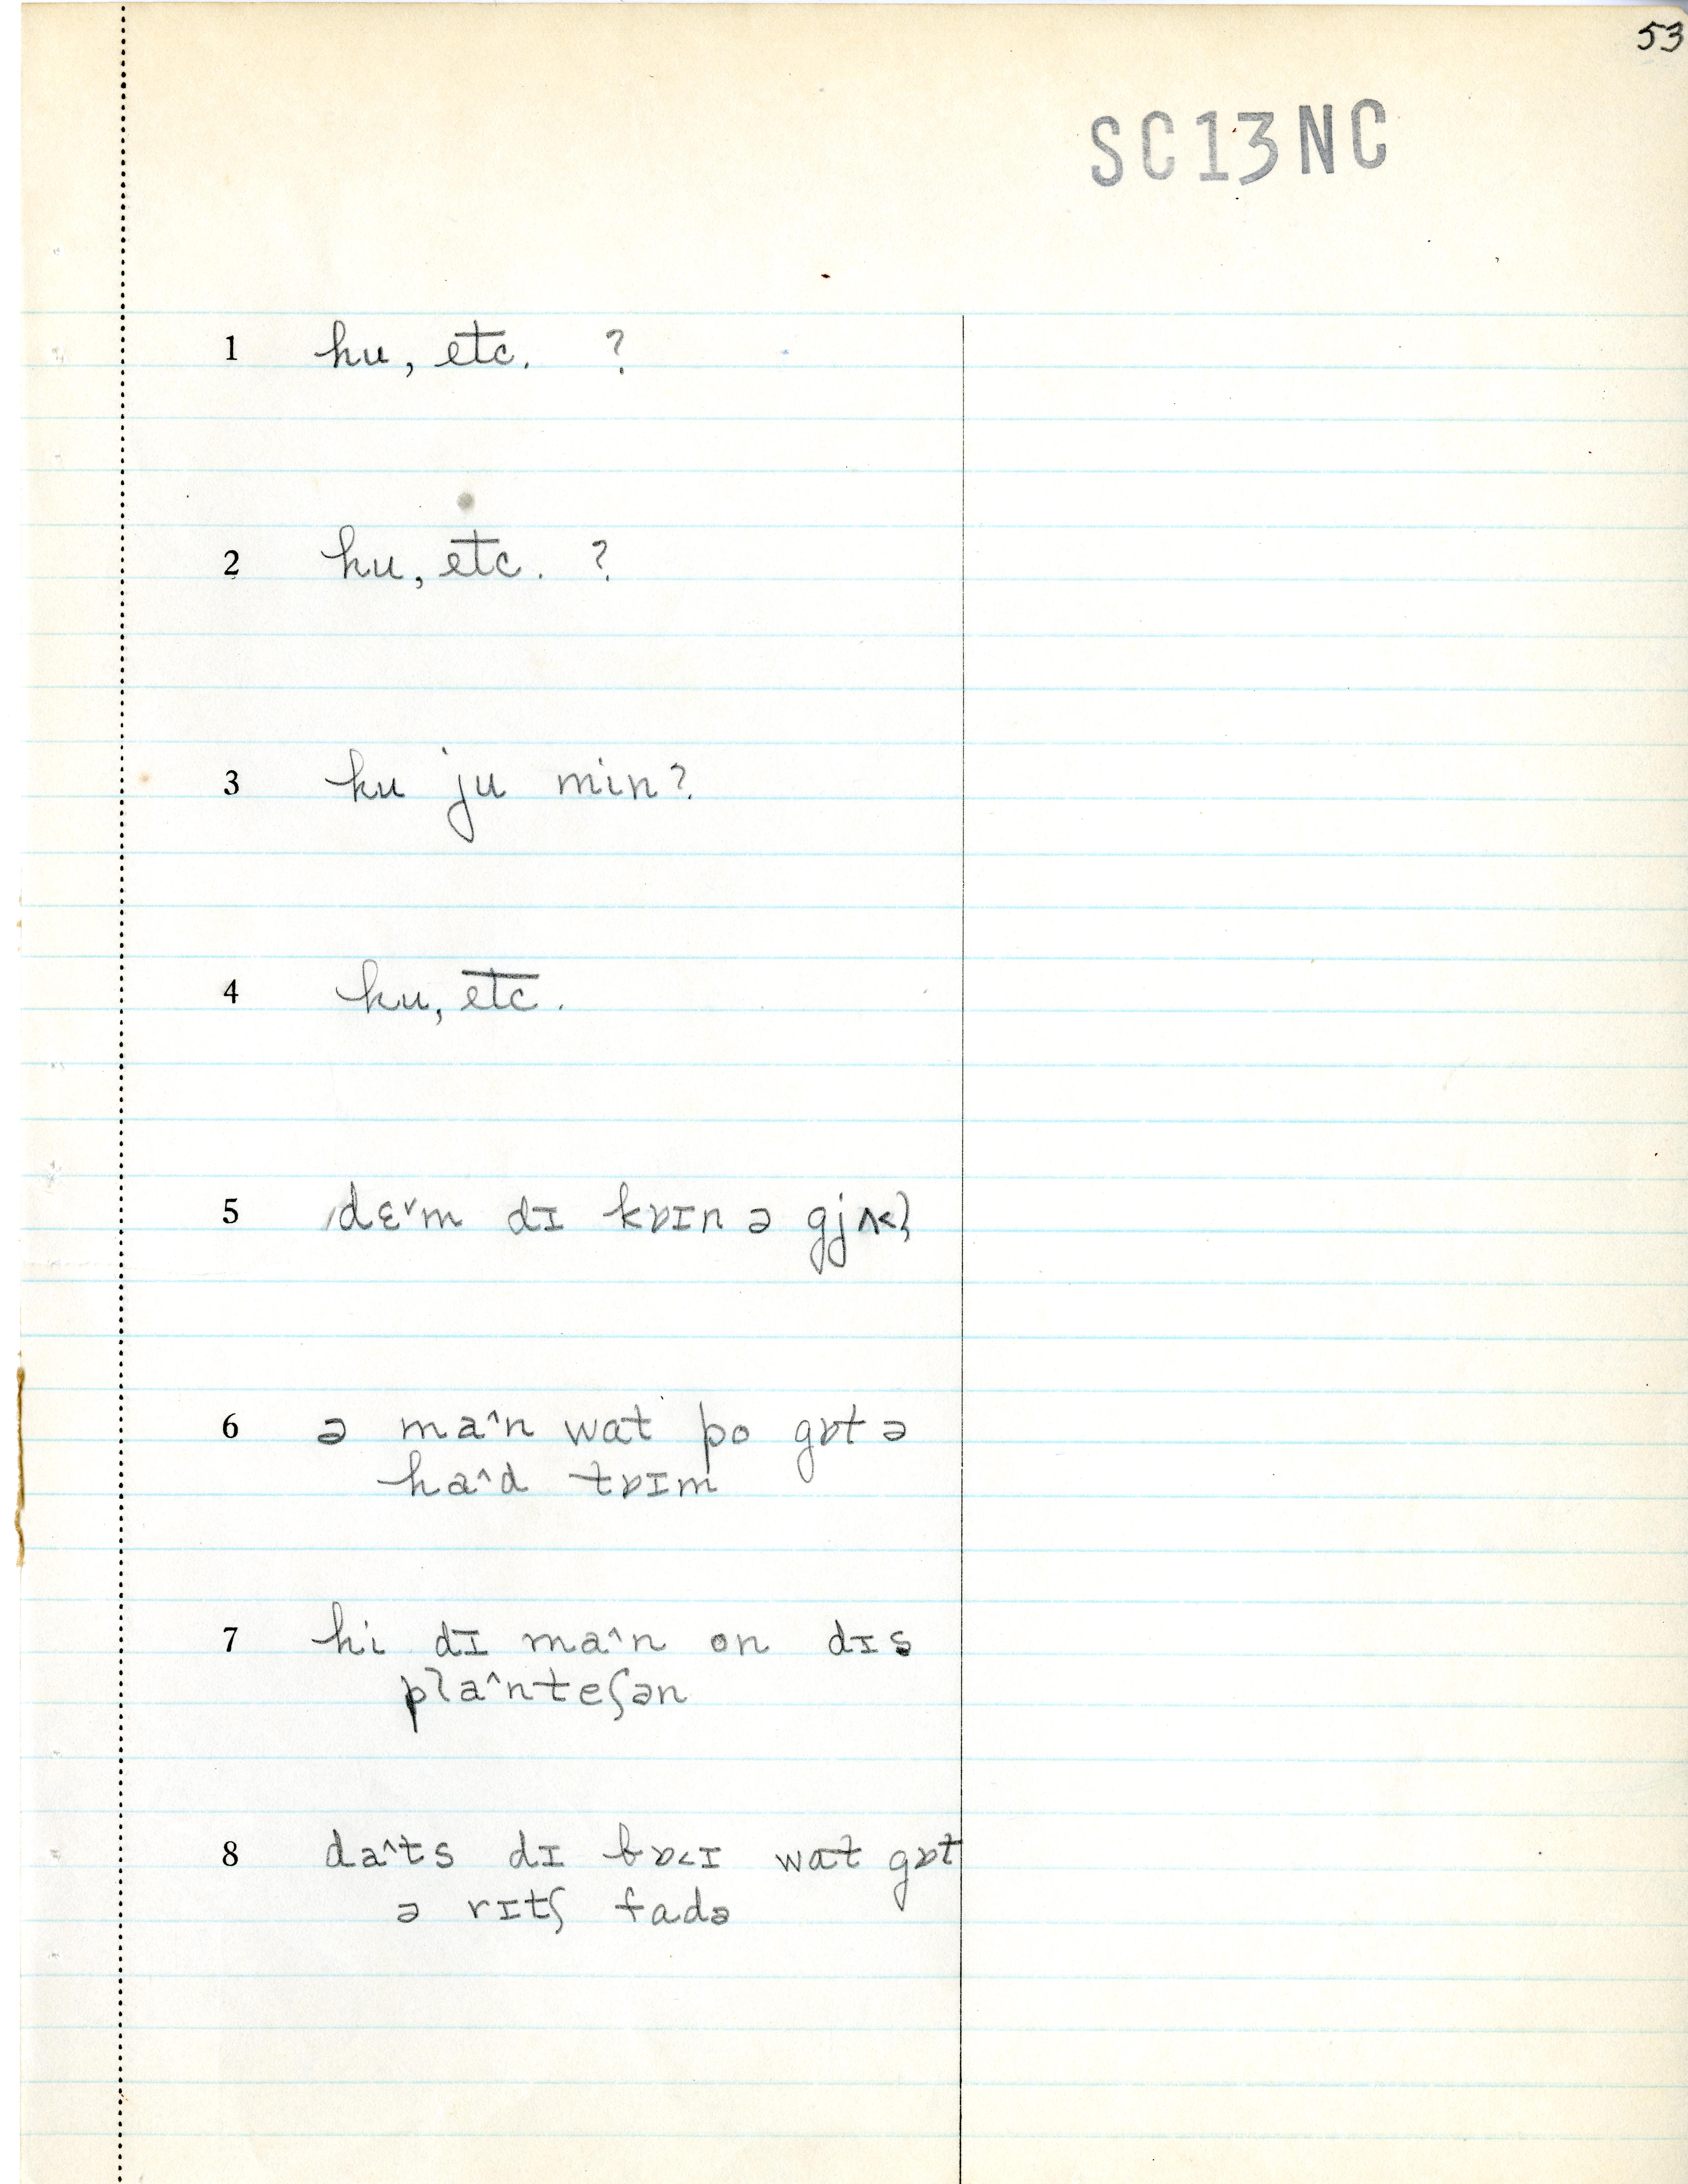 53
SC13NC
1 hu, etc. ?
2 hu, etc. ?
3 hu ju min?
4 hu, etc.
5 dɛ˅m dɪ kɒɪn ə gjʌ˂l
6 ə ma˄n wat po gɒt ə
ha˄d tɒɪm
7 hi dɪ ma˄n on dɪs
pla˄nteʃən
8 da˄ts dɪ bɒ˂ɪ wat gɒt
ə rɪtʃ fadə